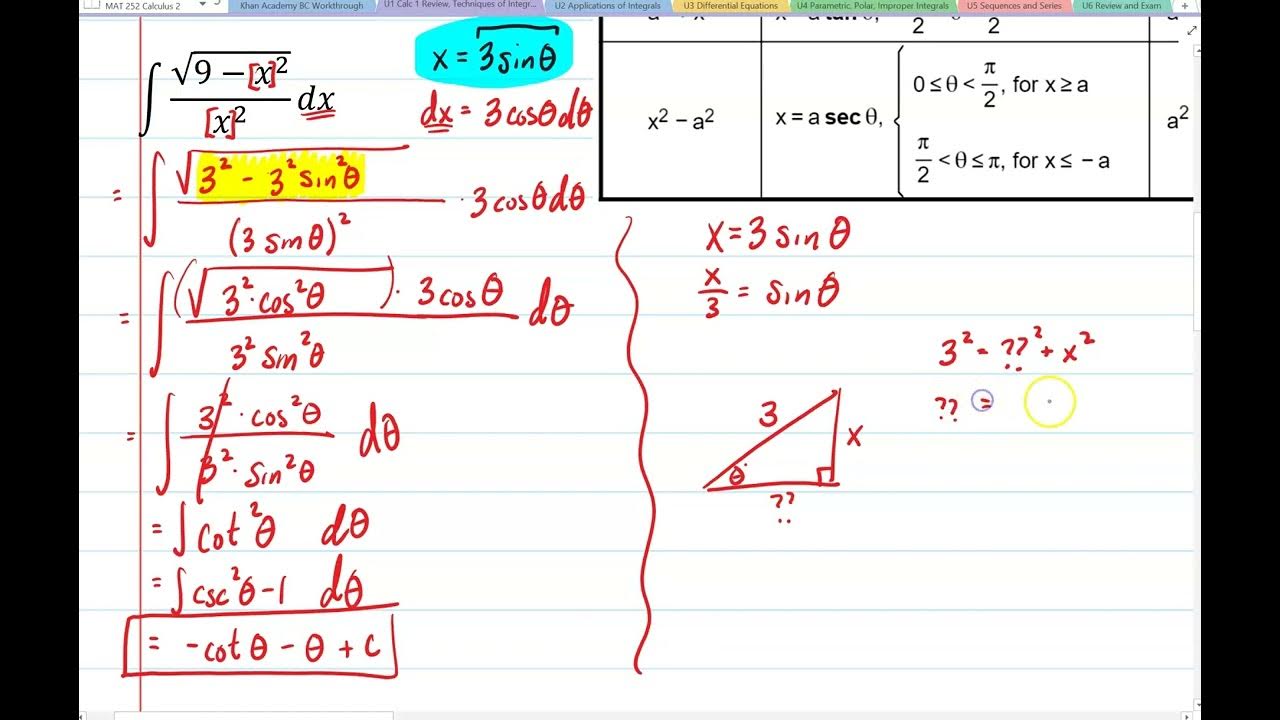 MAT 252 Calculus 2
Khan Academy BC Workthrough
U1 Calc 1 Review, Techniques of Integr...
U2 Applications of Integrals
U3 Differential Equations
U4 Parametric, Polar, Improper Integrals
U5 Sequences and Series
U6 Review and Exam
+
∫ √(9 − [x]²) / [x]² dx
x = 3 sin θ
dx = 3 cos θ dθ
= ∫ √(3² - 3² sin² θ) / (3 sin θ)² · 3 cos θ dθ
= ∫ (√(3² · cos² θ)) · 3 cos θ / 3² sin² θ dθ
= ∫ 3² · cos² θ / 3² · sin² θ dθ
= ∫ cot² θ dθ
= ∫ csc² θ - 1 dθ
= - cot θ - θ + c
2 2
x² − a²
x = a sec θ,
0 ≤ θ < π/2, for x ≥ a
π/2 < θ ≤ π, for x ≤ − a
a²
x = 3 sin θ
x/3 = sin θ
3² = ??² + x²
?? =
3
x
θ
??